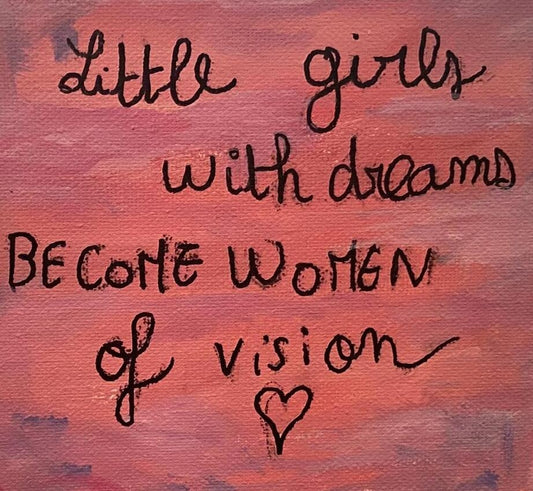 Little girls
with dreams
BECOME WOMEN
of vision